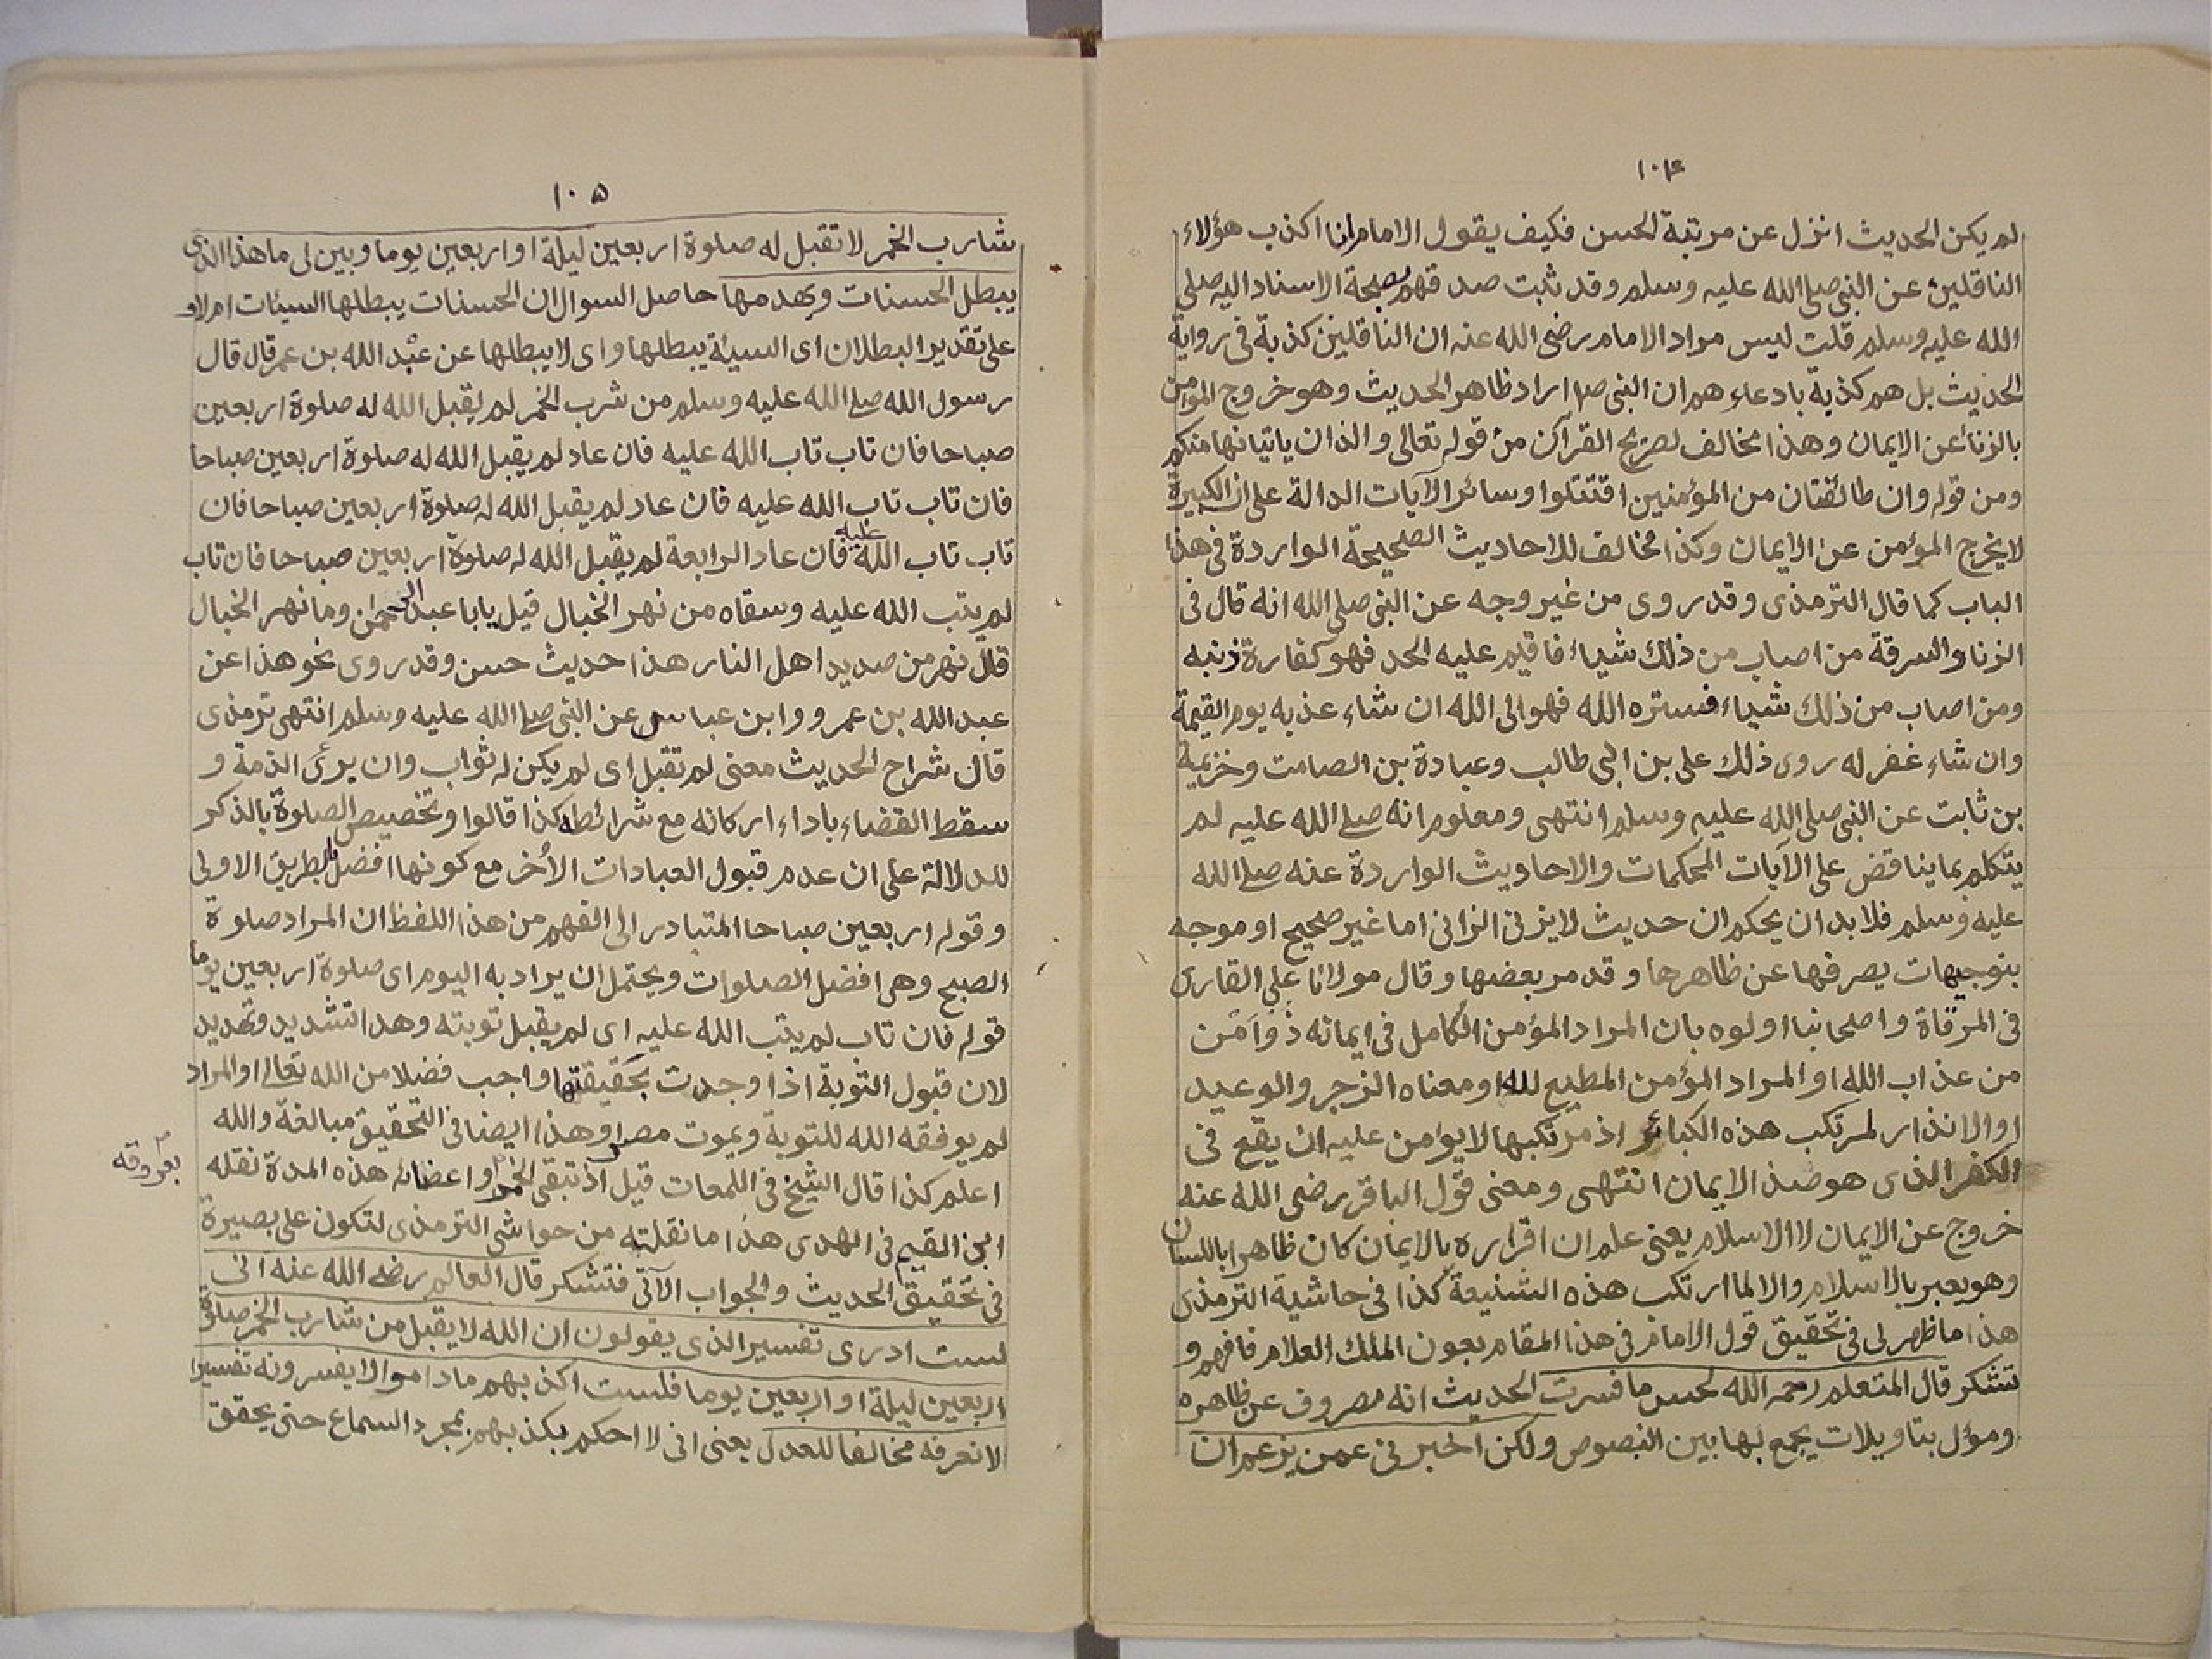 ١٠٤
لم يكن الحديث انزل عن مرتبة الحسن فكيف يقول الامام انا اكذب هؤلاء
الناقلين عن النبى صلى الله عليه وسلم وقد ثبت صدقهم بصحة الاسناد اليه صلى
الله عليه وسلم قلت ليس مراد الامام رضى الله عنه ان الناقلين كذبة فى رواية
الحديث بل هم كذبة بادعاء هم ان النبى صلم اراد ظاهر الحديث وهو خروج المؤمن
بالزنا عن الايمان وهذا مخالف لصريح القرآن من قوله تعالى والذان ياتيانها منكم
ومن قوله وان طائفتان من المؤمنين اقتتلوا وسائر الآيات الدالة على ان الكبيرة
لا يخرج المؤمن عن الايمان وكذا مخالف للاحاديث الصحيحة الواردة فى هذا
الباب كما قال الترمذى وقد روى من غير وجه عن النبى صلى الله انه قال فى
الزنا والسرقة من اصاب من ذلك شياء فاقيم عليه الحد فهو كفارة ذنبه
ومن اصاب من ذلك شياء فستره الله فهو الى الله ان شاء عذبه يوم القيمة
وان شاء غفر له روى ذلك على بن ابى طالب وعبادة بن الصامت وخزيمة
بن ثابت عن النبى صلى الله عليه وسلم انتهى ومعلوم انه صلے الله عليه لم
يتكلم بما يناقض على الآيات المحكمات والاحاديث الواردة عنه صلے الله
عليه وسلم فلا بد ان يحكم ان حديث لا يزنى الزانى اما غير صحيح او موجه
بتوجيهات يصرفها عن ظاهرها وقد مر بعضها وقال مولانا على القارى
فى المرقاة واصحابنا اولوه بان المراد المؤمن الكامل فى ايمانه ذو امن
من عذاب الله او المراد المؤمن المطيع لله او معناه الزجر والوعيد
او الانذار لمرتكب هذه الكبائر اذ مرتكبها لا يؤمن عليه ان يقع فى
الكفر الذى هو ضد الايمان انتهى ومعنى قول الباقر رضى الله عنه
خروج عن الايمان لا الاسلام يعنى علم ان اقراره بالايمان كان ظاهرا باللسان
وهو يعبر بالاسلام والا لما ارتكب هذه الشنيعة كذا فى حاشية الترمذى
هذا ما ظهر لى فى تحقيق قول الامام فى هذا المقام بعون الملك العلام فافهم و
تشكر قال المتعلم رحمه الله لحسن ما فسرت الحديث انه مصروف عن ظاهره
ومؤل بتاويلات يجمع بها بين النصوص ولكن اخبرنى عمن يزعم ان
١٠٥
شارب الخمر لا تقبل له صلوة اربعين ليلة او اربعين يوما وبين لى ما هذا الذى
يبطل الحسنات ويهدمها حاصل السوال ان الحسنات يبطلها السيئات ام لا و
على تقدير البطلان اى السيئة يبطلها واى لا يبطلها عن عبد الله بن عمر قال قال
رسول الله صلے الله عليه وسلم من شرب الخمر لم يقبل الله له صلوة اربعين
صباحا فان تاب تاب الله عليه فان عاد لم يقبل الله له صلوة اربعين صباحا
فان تاب تاب الله عليه فان عاد لم يقبل الله له صلوة اربعين صباحا فان
تاب تاب الله عليه فان عاد الرابعة لم يقبل الله له صلوة اربعين صباحا فان تاب
لم يتب الله عليه وسقاه من نهر الخبال قيل يابا عبد الرحمن وما نهر الخبال
قال نهر من صديد اهل النار هذا حديث حسن وقد روى نحو هذا عن
عبد الله بن عمرو وابن عباس عن النبى صلے الله عليه وسلم انتهى ترمذى
قال شراح الحديث معنى لم تقبل اى لم يكن له ثواب وان برئ الذمة و
سقط القضاء باداء اركانه مع شرائطه كذا قالوا وتخصيص الصلوة بالذكر
للدلالة على ان عدم قبول العبادات الأخر مع كونها افضل بالطريق الاولى
وقوله اربعين صباحا المتبادر الى الفهم من هذا اللفظ ان المراد صلوة
الصبح وهى افضل الصلوات ويحتمل ان يراد به اليوم اى صلوة اربعين يوما
قوله فان تاب لم يتب الله عليه اى لم يقبل توبته وهذا تشديد وتهديد
لان قبول التوبة اذا وجدت بحقيقتها واجب فضلا من الله تعالى او المراد
لم يوفقه الله للتوبة ويموت مصرا وهذا ايضا فى التحقيق مبالغة والله
اعلم كذا قال الشيخ فى اللمعات قيل اذ تبقى الخمر واعضائه هذه المدة نقله
بعروقه
ابن القيم فى الهدى هذا ما نقلته من حواشى الترمذى لتكون على بصيرة
فى تحقيق الحديث والجواب الآتى فتشكر قال العالم رضے الله عنه انى
لست ادرى تفسير الذى يقولون ان الله لا يقبل من شارب الخمر صلوة
اربعين ليلة او اربعين يوما فلست اكذبهم ما داموا لا يفسرونه تفسيرا
لا نعرفه مخالفا للعدل يعنى انى لا احكم بكذبهم بمجرد السماع حتى يحقق